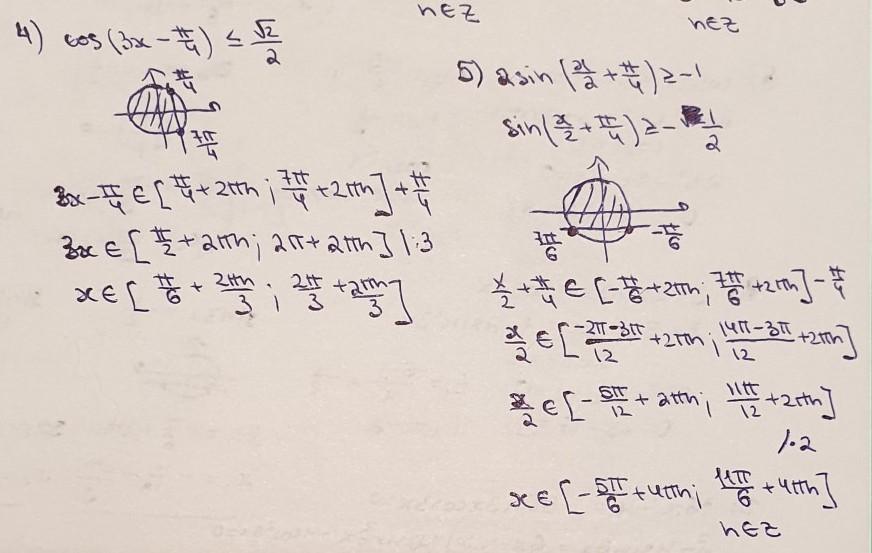 n∈Z
n∈Z
4) cos(3x - π/4) ≤ √2/2
π/4
7π/4
3x - π/4 ∈ [π/4 + 2πn ; 7π/4 + 2πn] + π/4
3x ∈ [π/2 + 2πn ; 2π + 2πn] |:3
x ∈ [π/6 + 2πn/3 ; 2π/3 + 2πn/3]
5) 2sin(x/2 + π/4) ≥ -1
sin(x/2 + π/4) ≥ -1/2
7π/6
-π/6
x/2 + π/4 ∈ [-π/6 + 2πn ; 7π/6 + 2πn] - π/4
x/2 ∈ [(-2π-3π)/12 + 2πn ; (14π-3π)/12 + 2πn]
x/2 ∈ [-5π/12 + 2πn ; 11π/12 + 2πn]
/·2
x ∈ [-5π/6 + 4πn ; 11π/6 + 4πn]
n∈Z